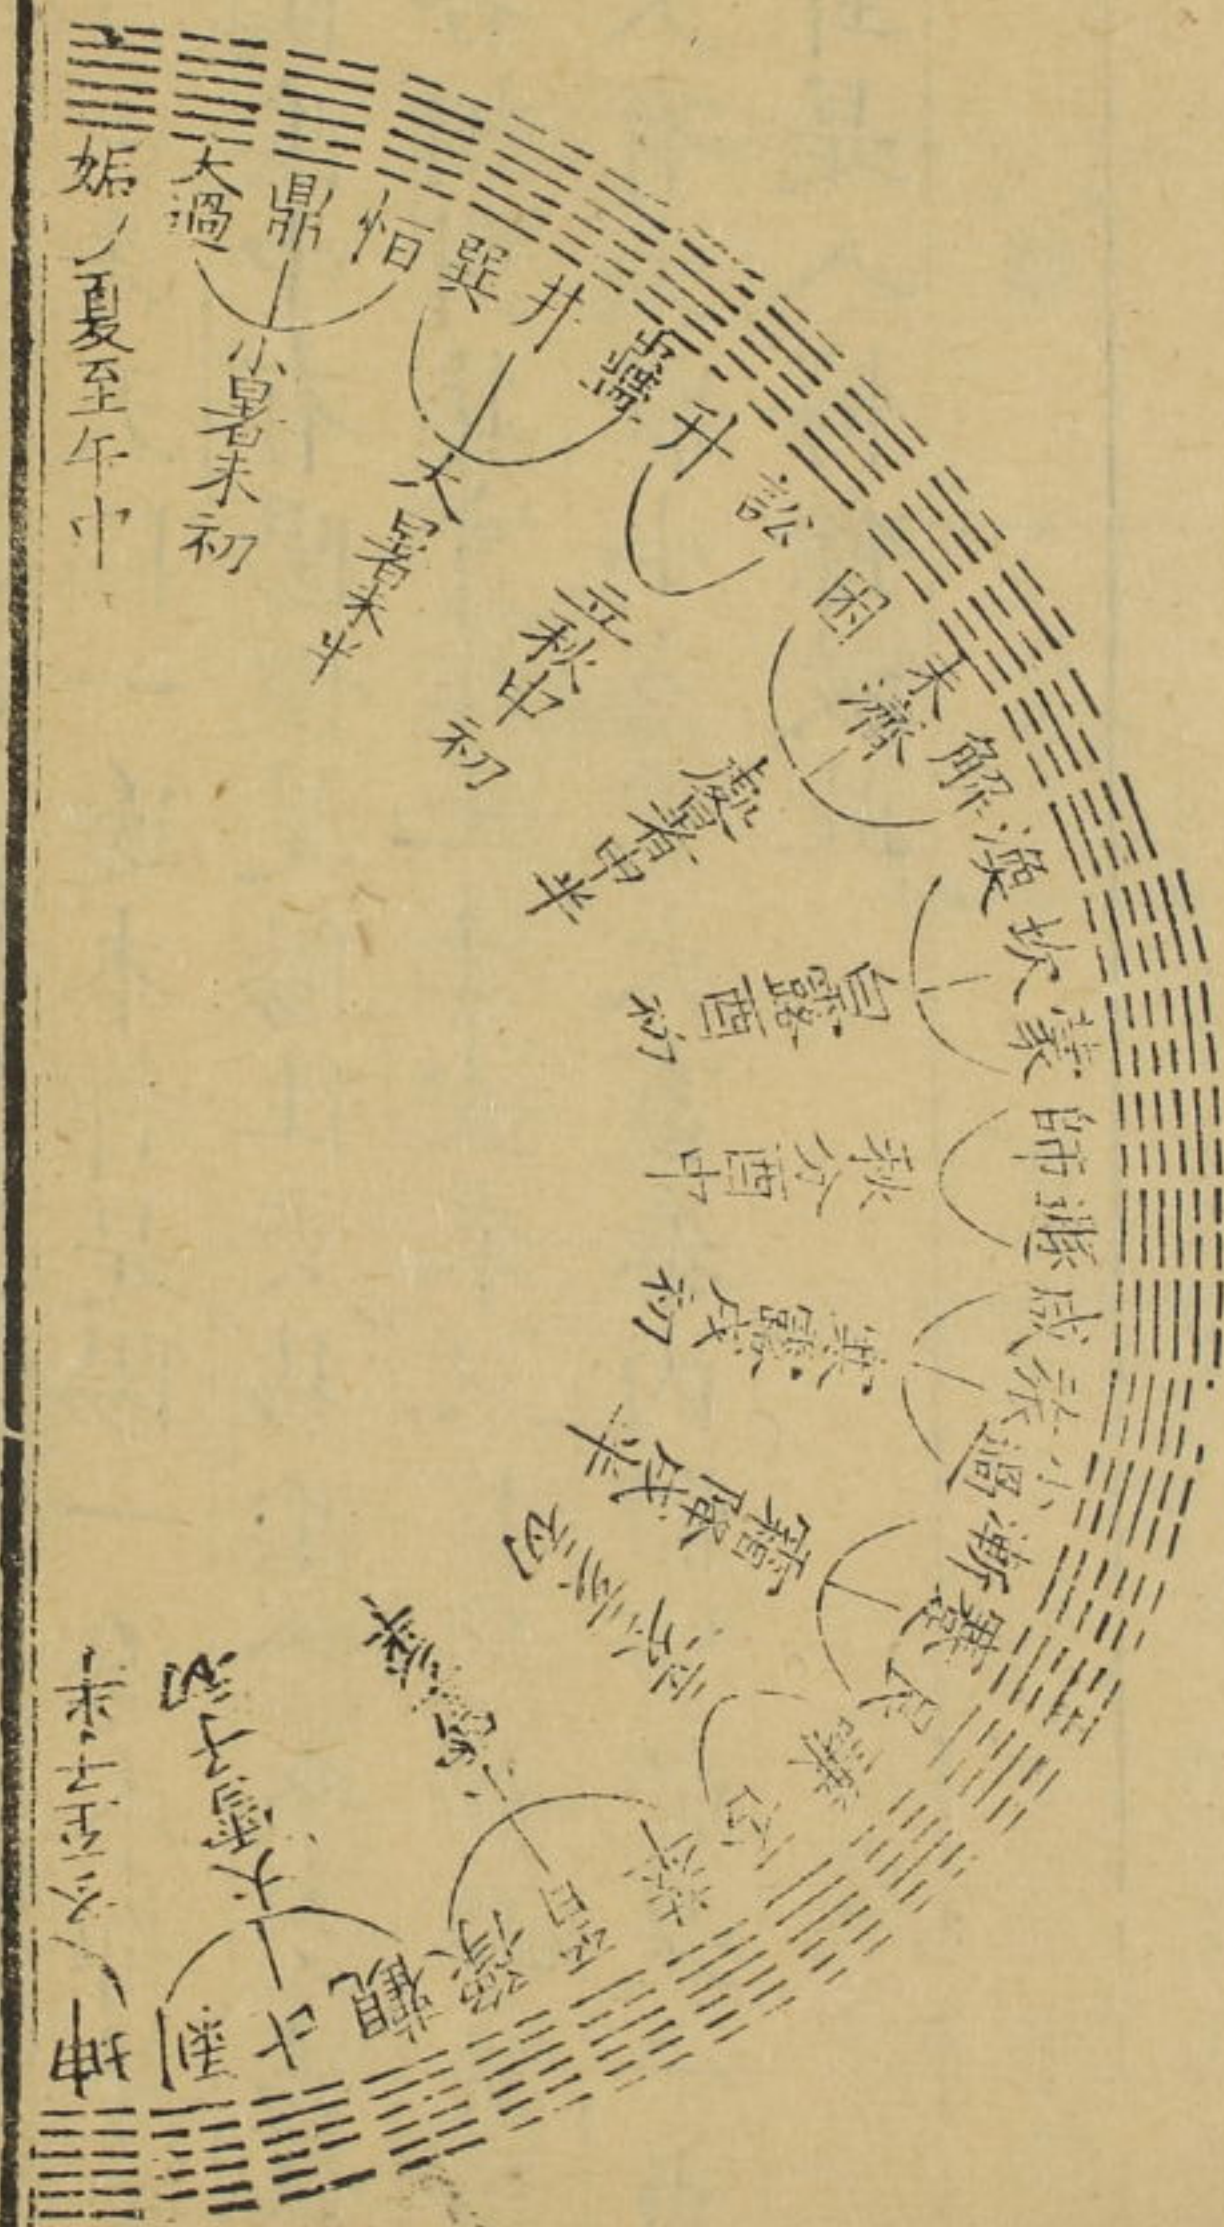 姤
夏至午中
大過
鼎
恒
小暑未初
巽
井
蠱
大暑未半
升
訟
立秋申初
困
未濟
解
處暑申半
渙
坎
蒙
白露酉初
師
遯
秋分酉中
咸
旅
小過
寒露戌初
漸
蹇
艮
霜降戌半
謙
否
立冬亥初
萃
晉
豫
小雪亥半
觀
比
剥
大雪子初
坤
冬至子半